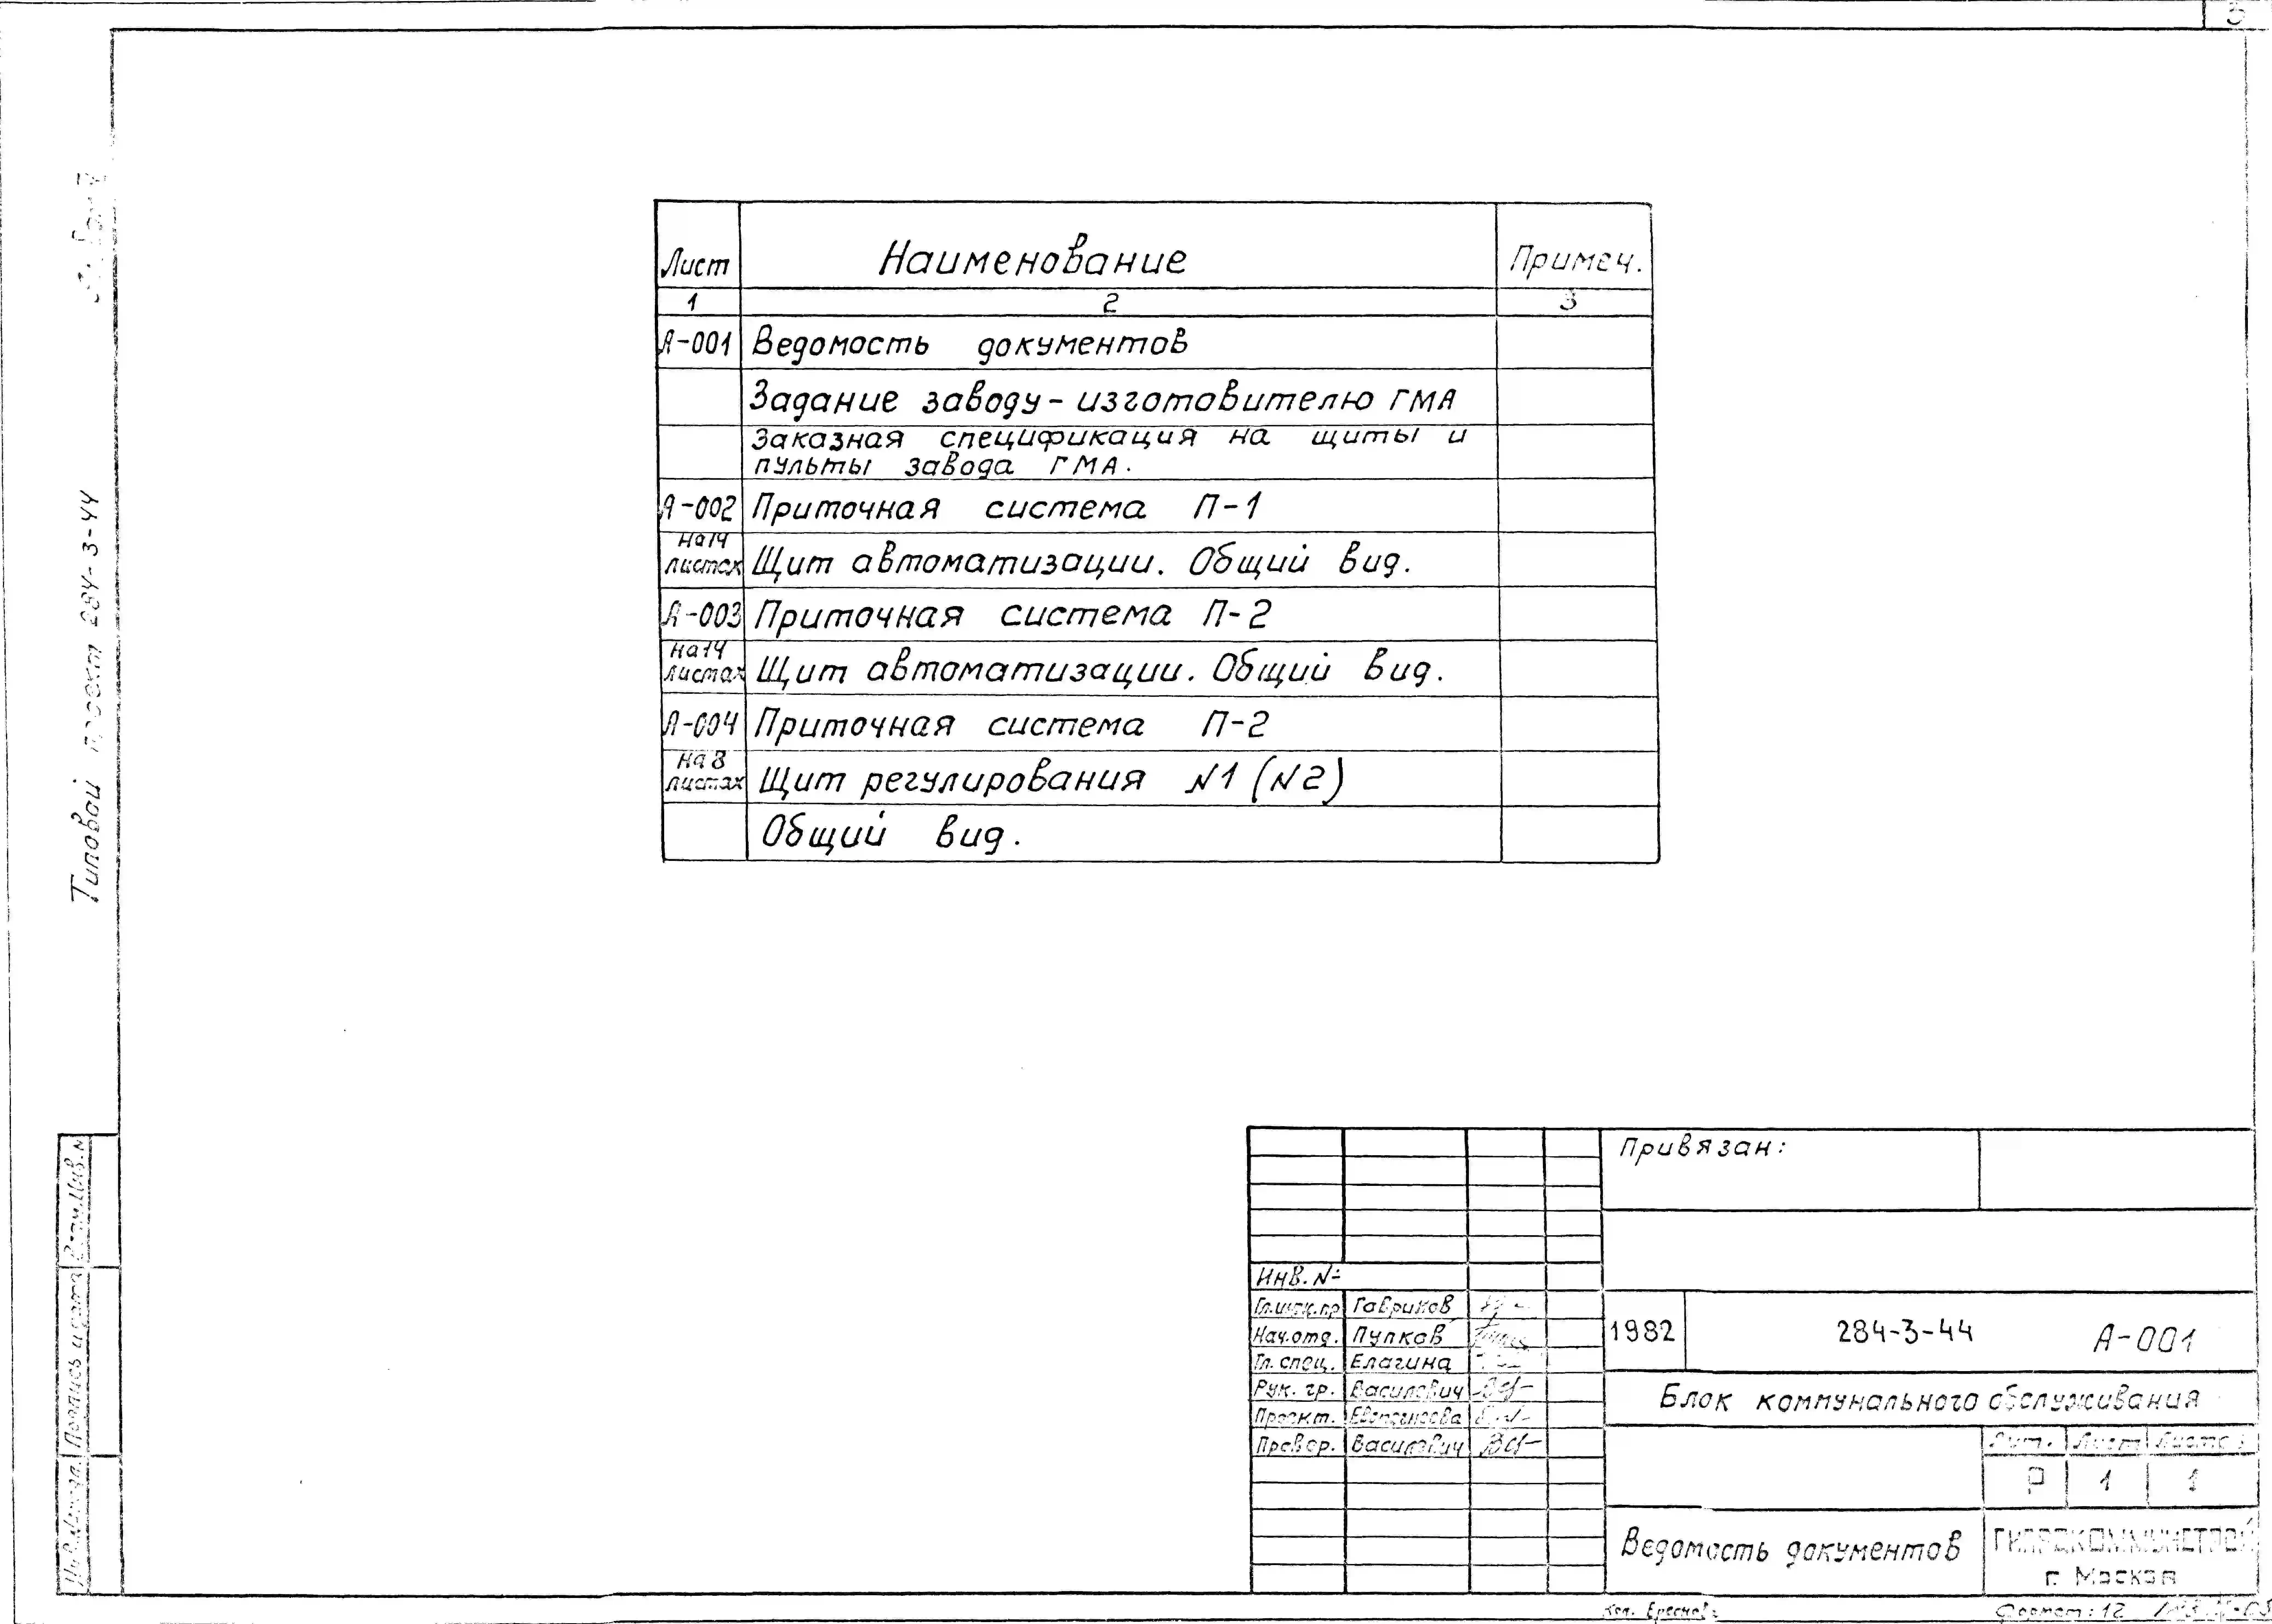 Лист Наименование Примеч.
1 2 3
А-001 Ведомость документов
Задание заводу-изготовителю ГМА
Заказная спецификация на щиты и
пульты завода ГМА.
А-002 Приточная система П-1
на 14
листах Щит автоматизации. Общий вид.
А-003 Приточная система П-2
на 14
листах Щит автоматизации. Общий вид.
А-004 Приточная система П-2
на 8
листах Щит регулирования №1 (№2)
Общий вид.
Типовой проект 284-3-44
Взам.Инв.№
Подпись и дата
Инв.№подл.
Привязан:
Инв.№
Гл.инж.пр Гавриков
Нач.отд. Пупков
Гл. спец. Елагина
Рук. гр. Василевич
Проект.
Провер. Василевич
1982 284-3-44 А-001
Блок коммунального обслуживания
Лит. Лист Листов
Р 1 1
Ведомость документов
ГИПРОКОММУНСТРОЙ
г. Москва
Кол.
Формат: 12